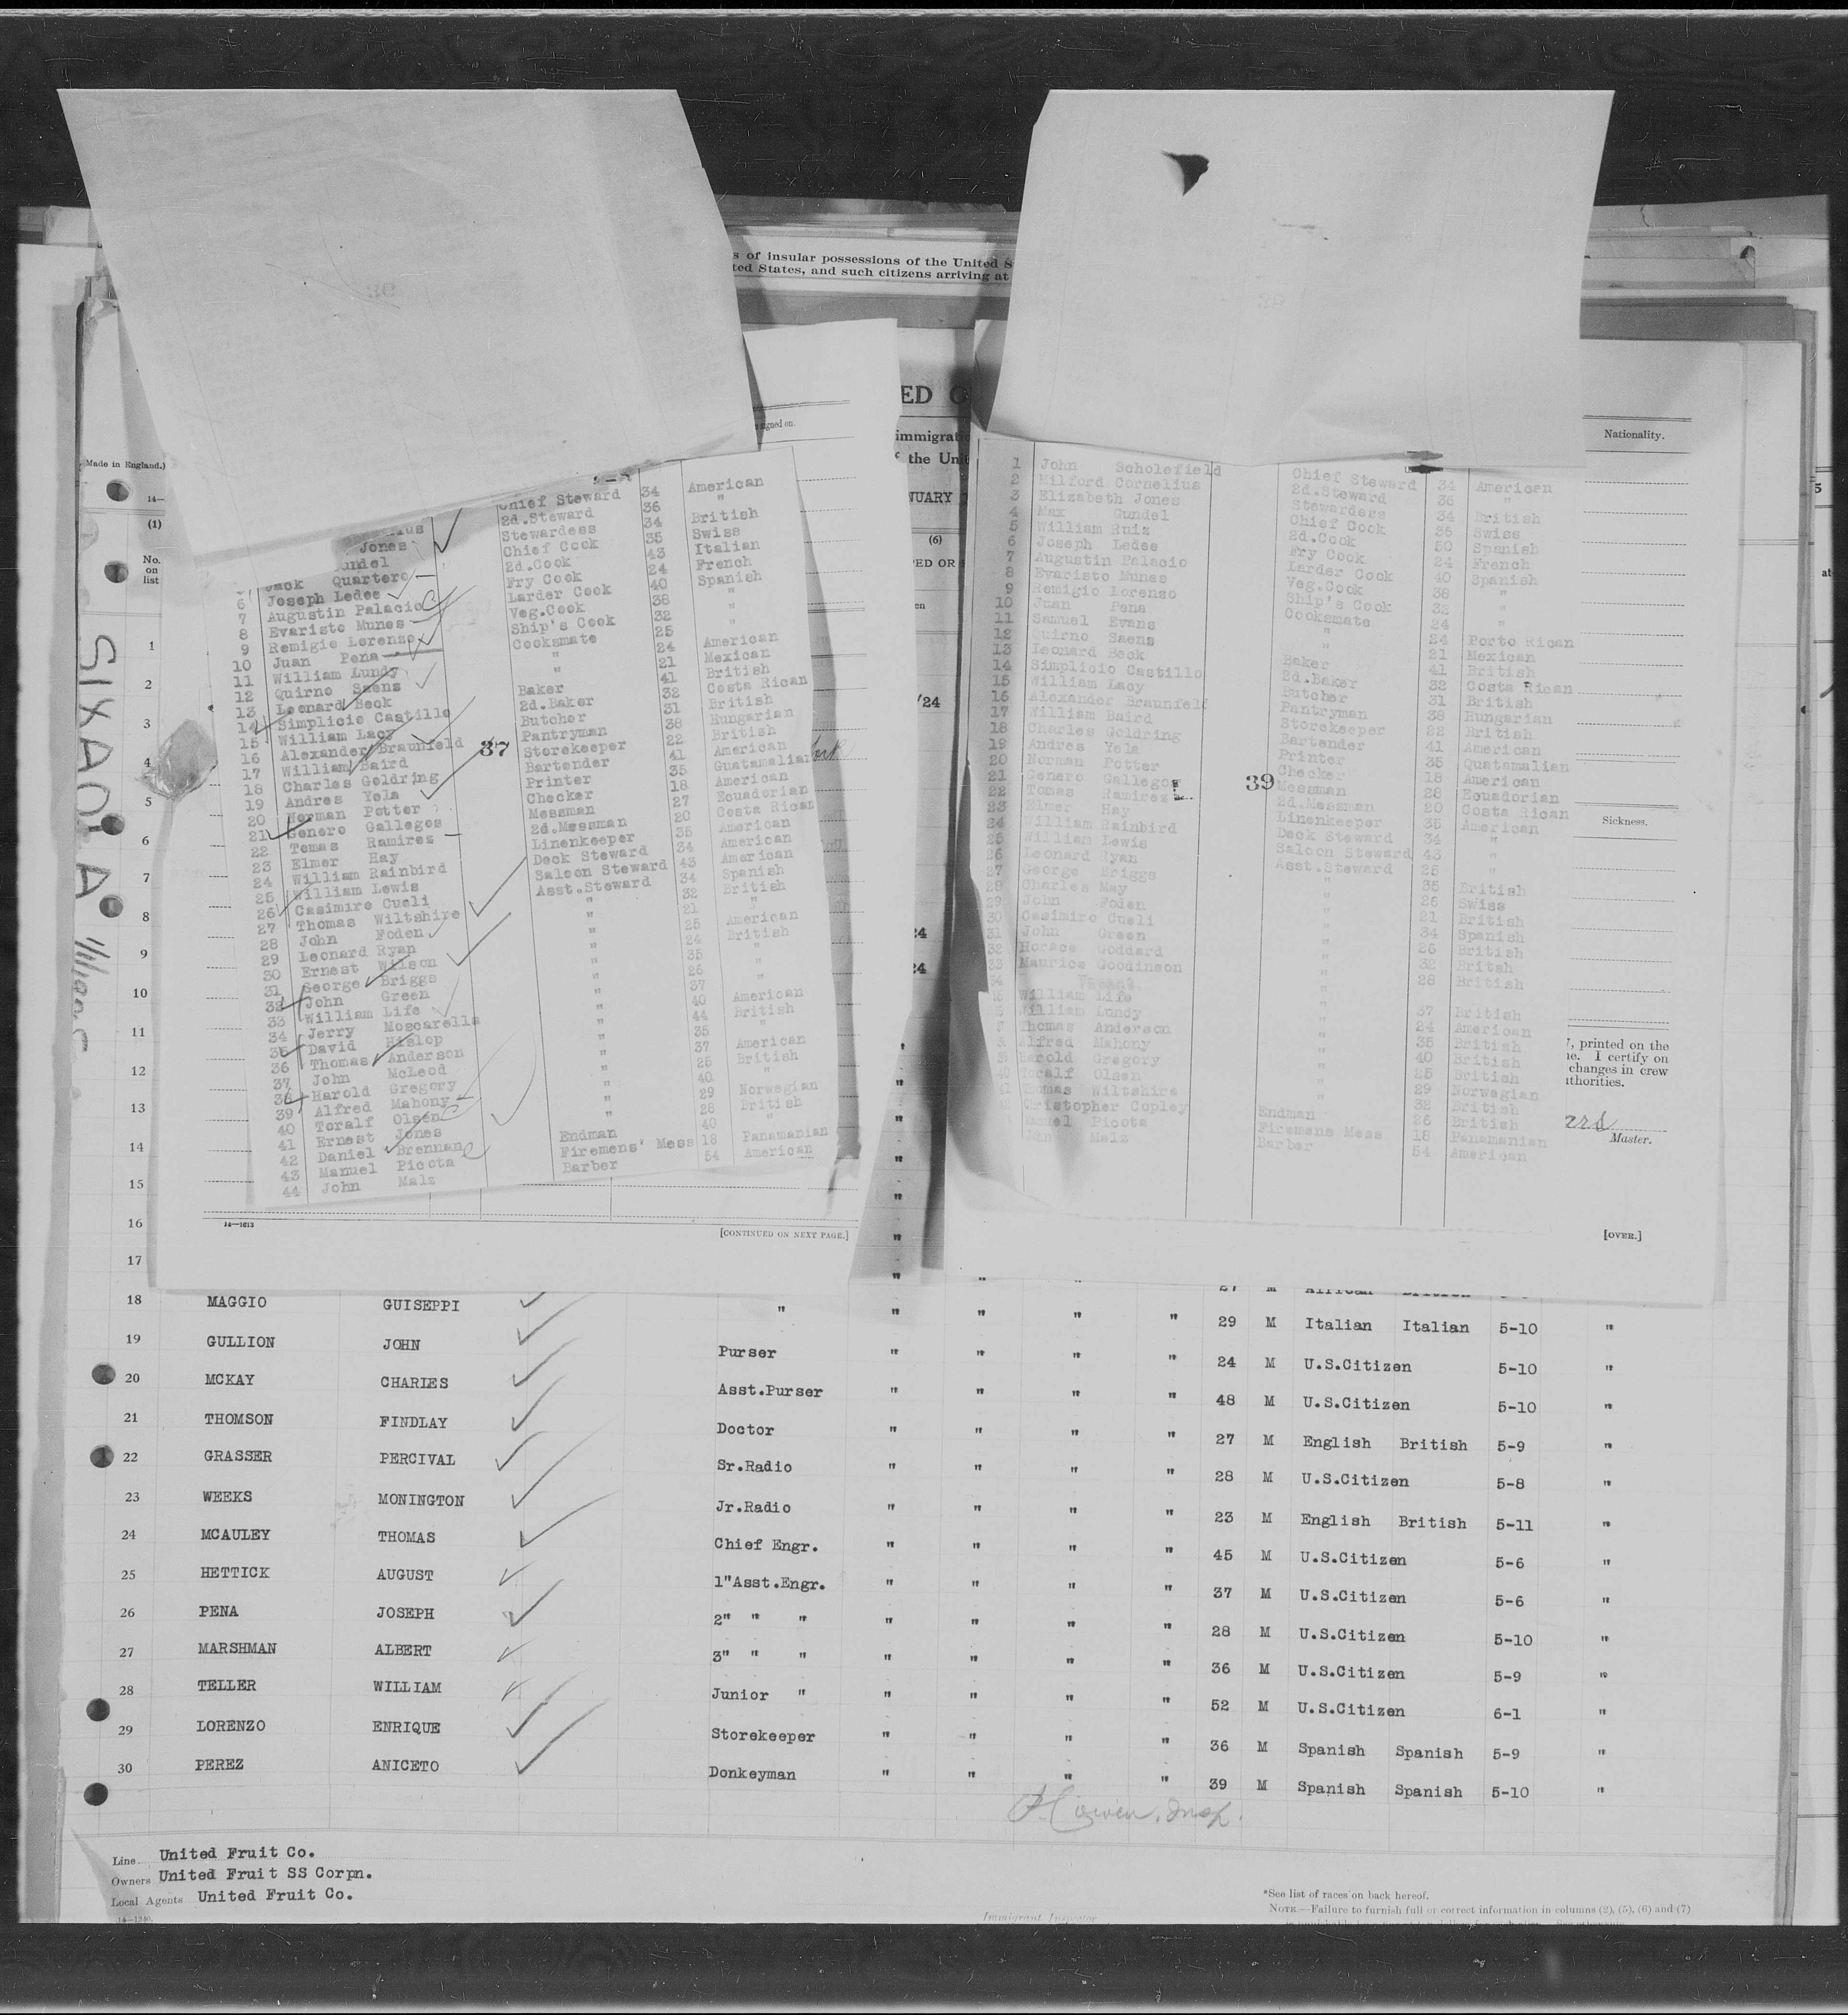 s of insular possessions of the United S
ted States, and such citizens arriving at
ED
immigrat
the Uni
NUARY
(6)
PED OR
/24
Made in England.)
14—
(1)
No.
on
list
SIXAOLA
signed on.
Chief Steward 34 American
2d.Steward 36 "
Jones Stewardess 34 British
undel Chief Cook 35 Swiss
Jack Quartero 2d.Cook 43 Italian
6 Joseph Ledee Fry Cook 24 French
7 Augustin Palacio Larder Cook 40 Spanish
8 Evaristo Munes Veg.Cook 38 "
9 Remigio Lorenzo Ship's Cook 32 "
10 Juan Pena Cooksmate 25 "
11 William Lundy " 24 American
12 Quirno Saens " 21 Mexican
13 Leonard Beck Baker 41 British
14 Simplicio Castillo 2d.Baker 32 Costa Rican
15 William Lacy Butcher 31 British
16 Alexander Braunfeld Pantryman 38 Hungarian
17 William Baird Storekeeper 22 British
18 Charles Goldring Bartender 41 American
19 Andres Yela Printer 35 Guatamalian
20 Norman Potter Checker 18 American
21 Genero Gallegos Messman 27 Ecuadorian
22 Tomas Ramirez 2d.Messman 20 Costa Rican
23 Elmer Hay Linenkeeper 35 American
24 William Rainbird Deck Steward 34 American
25 William Lewis Saloon Steward 43 American
26 Casimiro Cueli Asst.Steward 34 Spanish
27 Thomas Wiltshire " 32 British
28 John Foden " 21 "
29 Leonard Ryan " 25 American
30 Ernest Wilson " 24 British
31 George Briggs " 35 "
32 John Green " 26 "
33 William Life " 37 "
34 Jerry Moscarella " 40 American
35 David Hislop " 44 British
36 Thomas Anderson " 35 "
37 John McLeod " 37 American
38 Harold Gregory " 25 British
39 Alfred Mahony " 40 "
40 Toralf Olsen " 29 Norwegian
41 Ernest Jones " 28 British
42 Daniel Brennan Endman 40 "
43 Manuel Picota Firemens' Mess 18 Panamanian
44 John Malz Barber 54 American
37
14—1613
[CONTINUED ON NEXT PAGE.]
Nationality.
1 John Scholefield Chief Steward 34 American
2 Milford Cornelius 2d.Steward 36 "
3 Elizabeth Jones Stewardess 34 British
4 Max Gundel Chief Cook 36 Swiss
5 William Ruiz 2d.Cook 50 Spanish
6 Joseph Ledee Fry Cook 24 French
7 Augustin Palacio Larder Cook 40 Spanish
8 Evaristo Munes Veg.Cook 38 "
9 Remigio Lorenzo Ship's Cook 32 "
10 Juan Pena Cooksmate 24 "
11 Samuel Evans " 24 Porto Rican
12 Quirno Saens 21 Mexican
13 Leonard Beck Baker 41 British
14 Simplicio Castillo 2d.Baker 32 Costa Rican
15 William Lacy Butcher 31 British
16 Alexander Braunfeld Pantryman 38 Hungarian
17 William Baird Storekeeper 22 British
18 Charles Goldring Bartender 41 American
19 Andres Yela Printer 35 Quatamalian
20 Norman Potter Checker 18 American
21 Genero Gallegos Messman 28 Ecuadorian
22 Tomas Ramirez 2d.Messman 20 Costa Rican
23 Elmer Hay Linenkeeper 35 American
24 William Rainbird Deck Steward 34 "
25 William Lewis Saloon Steward 43 "
26 Leonard Ryan Asst.Steward 25 "
27 George Briggs " 35 British
28 Charles May " 26 Swiss
29 John Foden " 21 British
30 Casimiro Cueli " 34 Spanish
31 John Green " 26 British
32 Horace Goddard " 32 Britsh
33 Maurice Goodinson " 28 British
34
William Life " 37 British
William Lundy " 24 American
Thomas Anderson " 35 British
Alfred Mahony " 40 British
Harold Gregory " 25 British
40 Toralf Olsen " 29 Norwegian
41 Thomas Wiltshire " 32 British
Christopher Copley Endman 26 British
Manuel Picota Firemens Mess 18 Panamanian
John Malz Barber 54 American
39
Sickness.
, printed on the
ne. I certify on
changes in crew
uthorities.
Master.
[OVER.]
1
2
3
4
5
6
7
8
9
10
11
12
13
14
15
16
17
18 MAGGIO GUISEPPI " " " " " 29 M Italian Italian 5-10 "
19 GULLION JOHN Purser " " " " 24 M U.S.Citizen 5-10 "
20 MCKAY CHARLES Asst.Purser " " " " 48 M U.S.Citizen 5-10 "
21 THOMSON FINDLAY Doctor " " " " 27 M English British 5-9 "
22 GRASSER PERCIVAL Sr.Radio " " " " 28 M U.S.Citizen 5-8 "
23 WEEKS MONINGTON Jr.Radio " " " " 23 M English British 5-11 "
24 MCAULEY THOMAS Chief Engr. " " " " 45 M U.S.Citizen 5-6 "
25 HETTICK AUGUST 1"Asst.Engr. " " " " 37 M U.S.Citizen 5-6 "
26 PENA JOSEPH 2" " " " " " " 28 M U.S.Citizen 5-10 "
27 MARSHMAN ALBERT 3" " " " " " " 36 M U.S.Citizen 5-9 "
28 TELLER WILLIAM Junior " " " " " 52 M U.S.Citizen 6-1 "
29 LORENZO ENRIQUE Storekeeper " " " " 36 M Spanish Spanish 5-9 "
30 PEREZ ANICETO Donkeyman " " " " 39 M Spanish Spanish 5-10 "
Insp.
Line United Fruit Co.
Owners United Fruit SS Corpn.
Local Agents United Fruit Co.
14—1240
Immigrant Inspector
*See list of races on back hereof.
NOTE.—Failure to furnish full or correct information in columns (2), (5), (6) and (7)